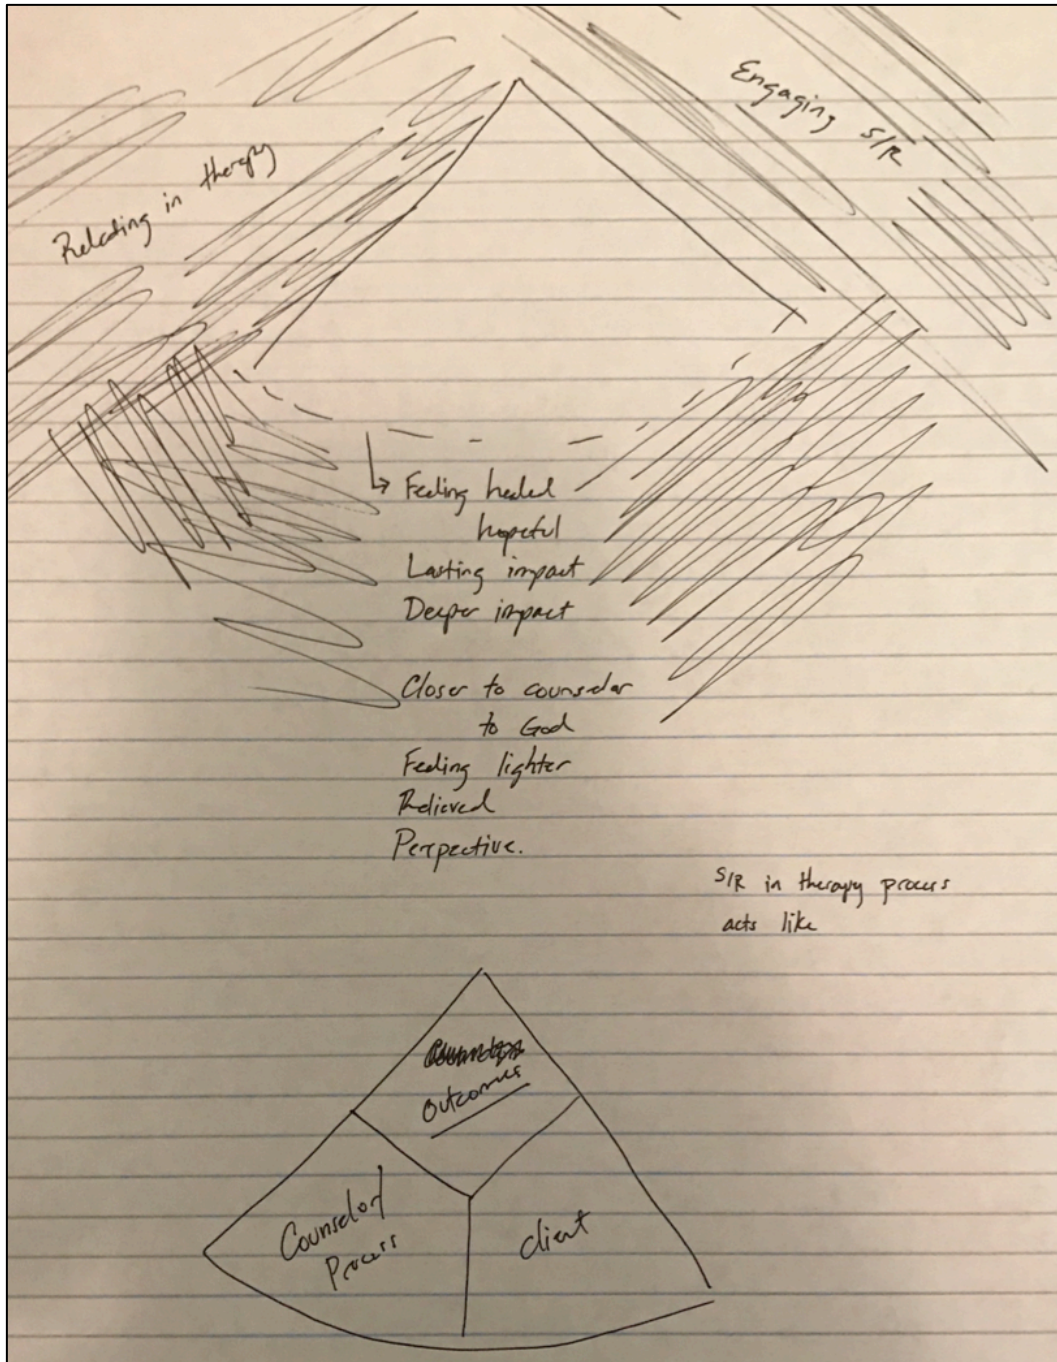 Engaging S/R
Relating in therapy
Feeling healed
hopeful
Lasting impact
Deeper impact
Closer to counselor
to God
Feeling lighter
Relieved
Perspective.
S/R in therapy process
acts like
Outcomes
Counselor/
Process
Client